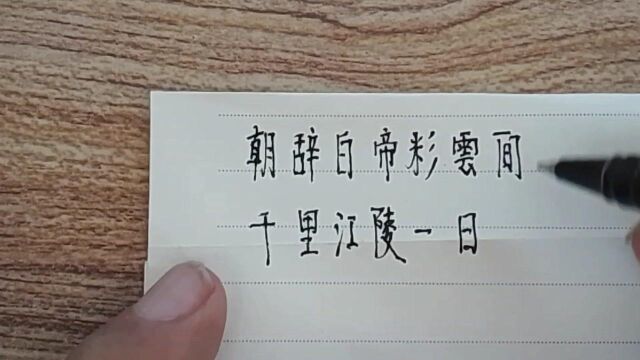 朝辞白帝彩雲间
千里江陵一日